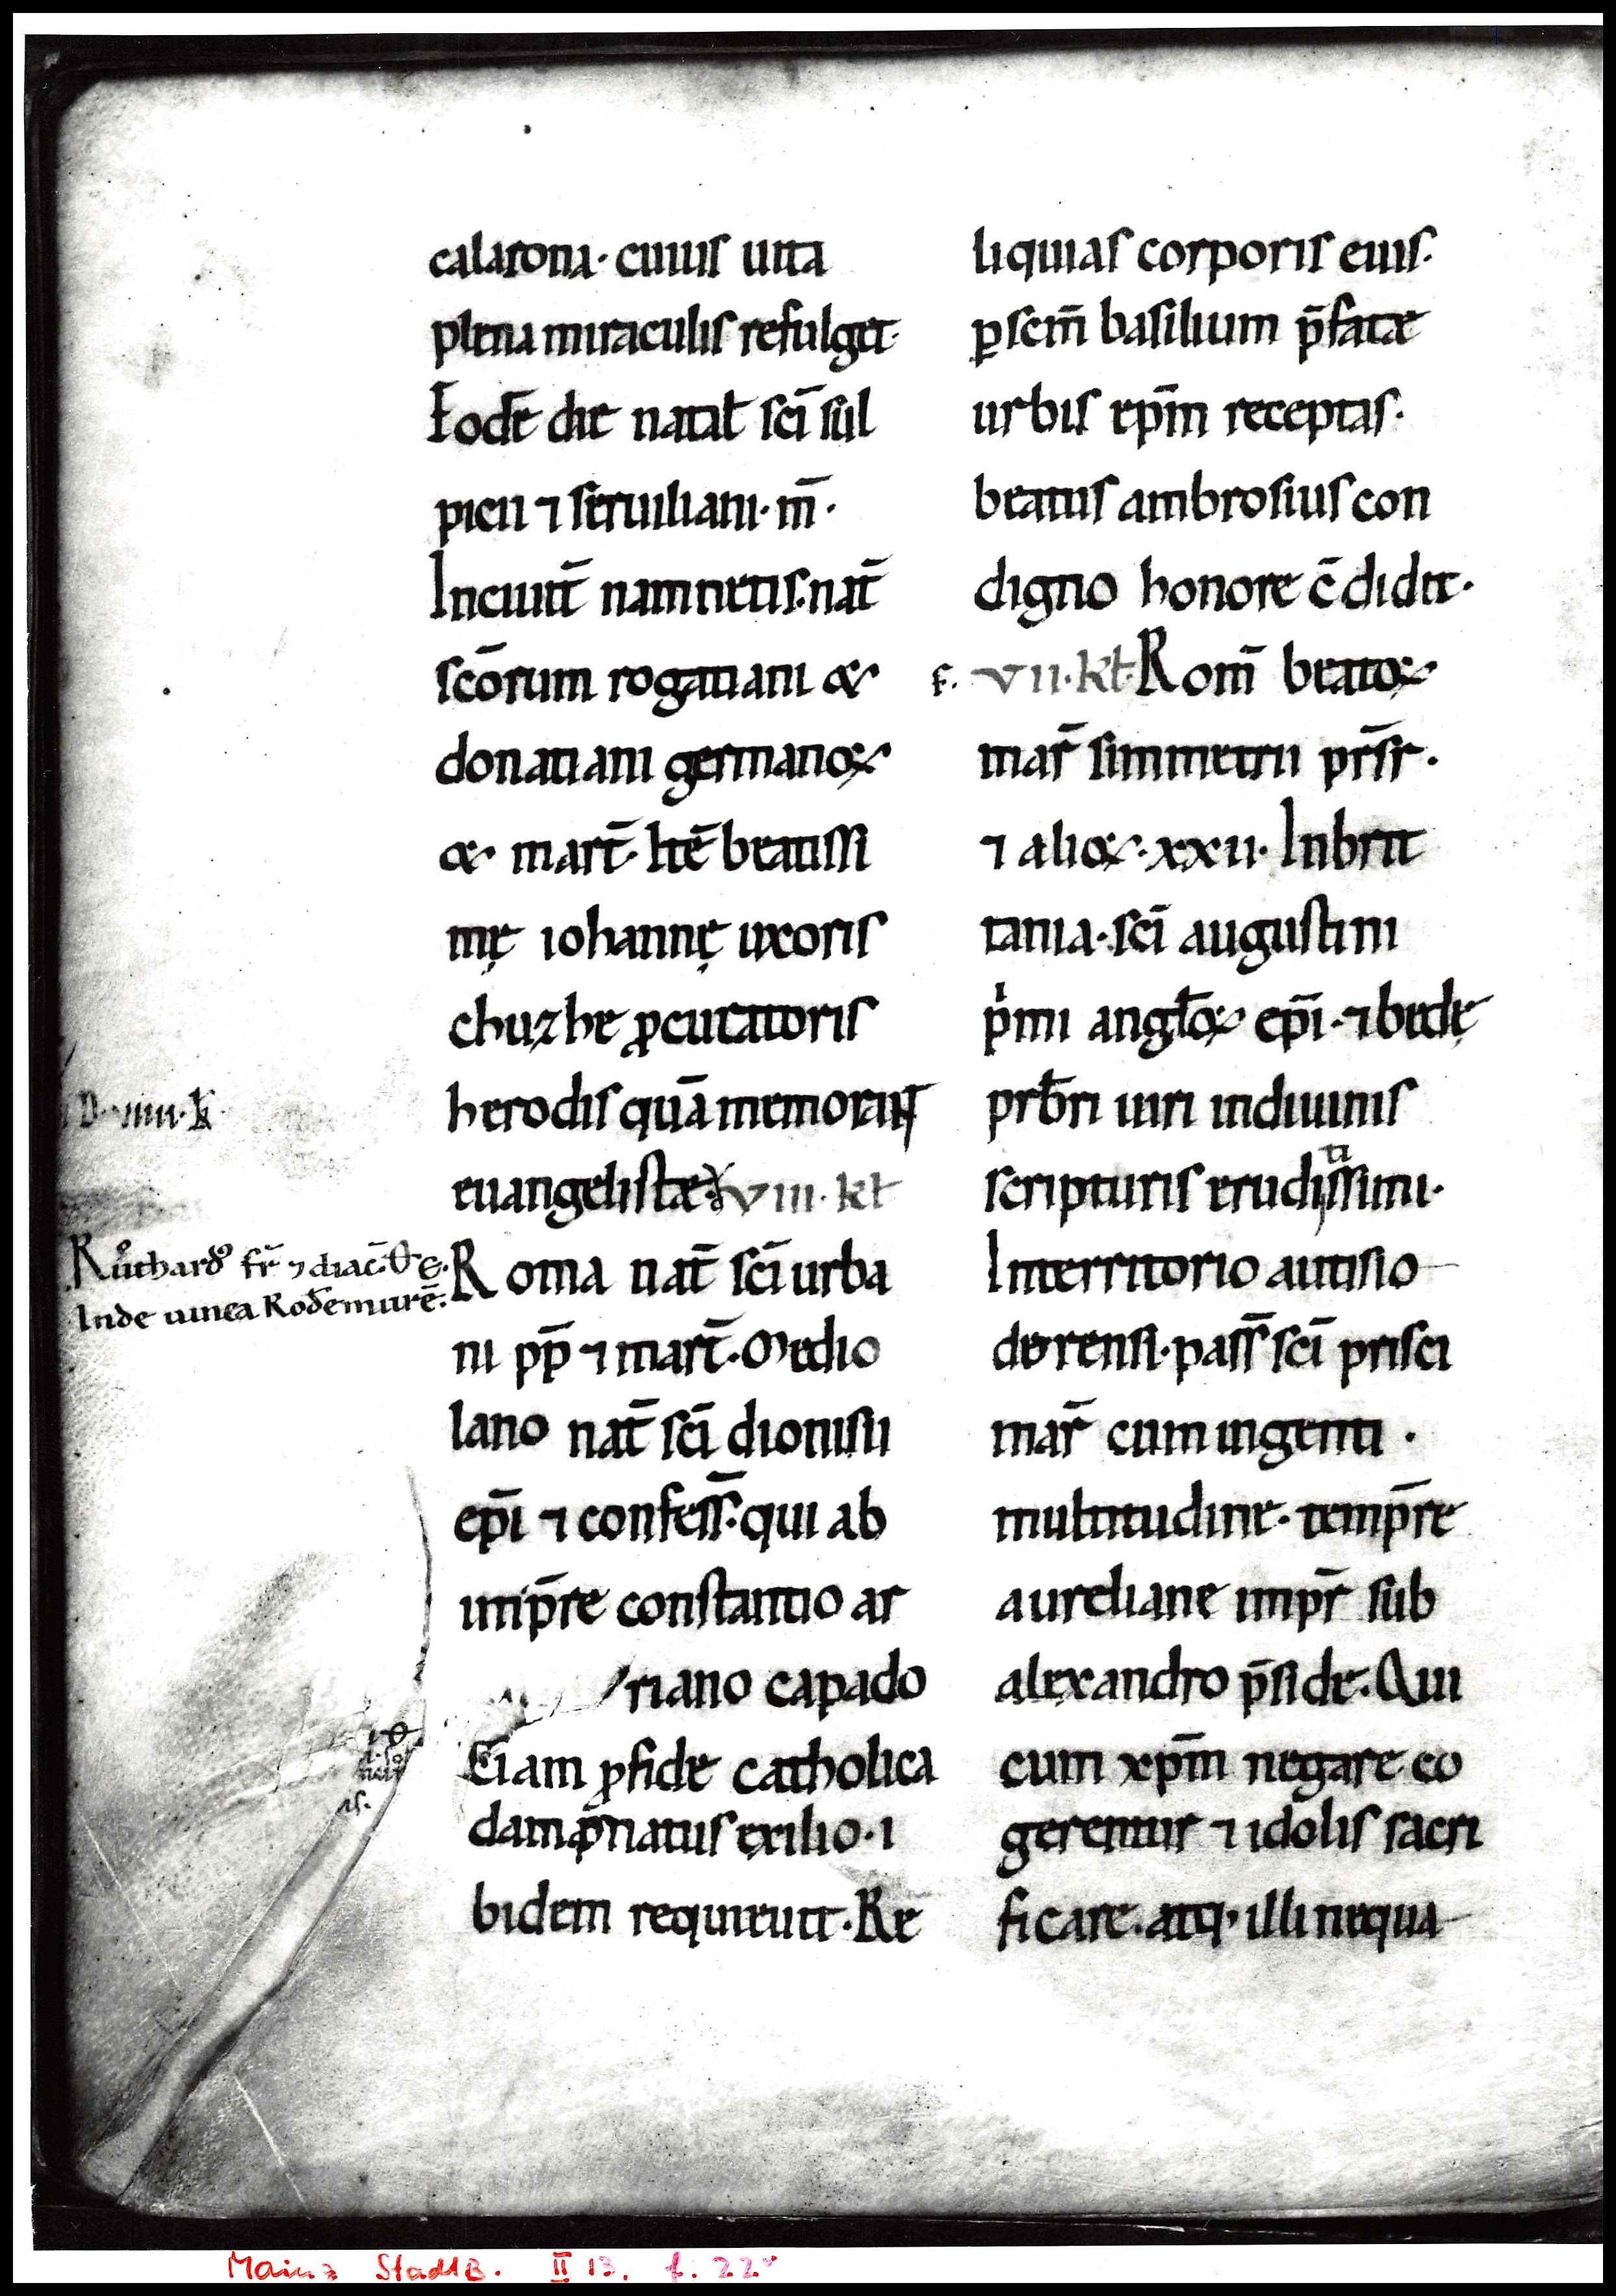 calatona· cuius uita
plena miraculis refulget·
Eodē die natal̄ sc̄i sul
picii ⁊ seruiliani· m̄·
Inciuit̄ namnetis· nat̄
scōrum rogatiani &
donatiani germanoꝝ
& mart̄· Itē beatissi
mę iohannę uxoris
chuzhe ꝓcuratoris
herodis quā memorant
euangelistæ· VIII· kl̄
Roma nat̄ sc̄i urba
ni pp̄ ⁊ mart̄· Medio
lano nat̄ sc̄i dionisii
ep̄i ⁊ confess̄· qui ab
imp̄re constantio ar
riano capado
ciam ꝓ fide catholica
dampnatus exilio· i
bidem requieuit· Re
liquias corporis eius·
ꝑ scm̄ basilium p̄fatæ
urbis ep̄m receptas·
beatus ambrosius con
digno honore c̄didit·
F· VII· kl̄· Rom̄ beatoꝝ
mar̄ simmetrii pr̄sr·
⁊ alioꝝ· xxii· Inbrit
tania· sc̄i augustini
pͥmi angl̄oꝝ ep̄i· ⁊ bedę
prb̄ri uiri indiuinis
scripturis erudiꞌtiꞌssimi·
Interritorio autisio
derensi· pass̄ sc̄i prisci
mar̄ cum ingenti·
multitudine· temp̄re
aureliane impr̄ sub
alexandro p̄side· Qui
cum xp̄m negare co
gerentur ⁊ idolis sacri
ficare· atq· illi nequa
Růthardꝰ fr̄ ⁊ diac̄· O· e·
Inde uinea Rodemure·
Mainz StadtB. II 13. f. 22v